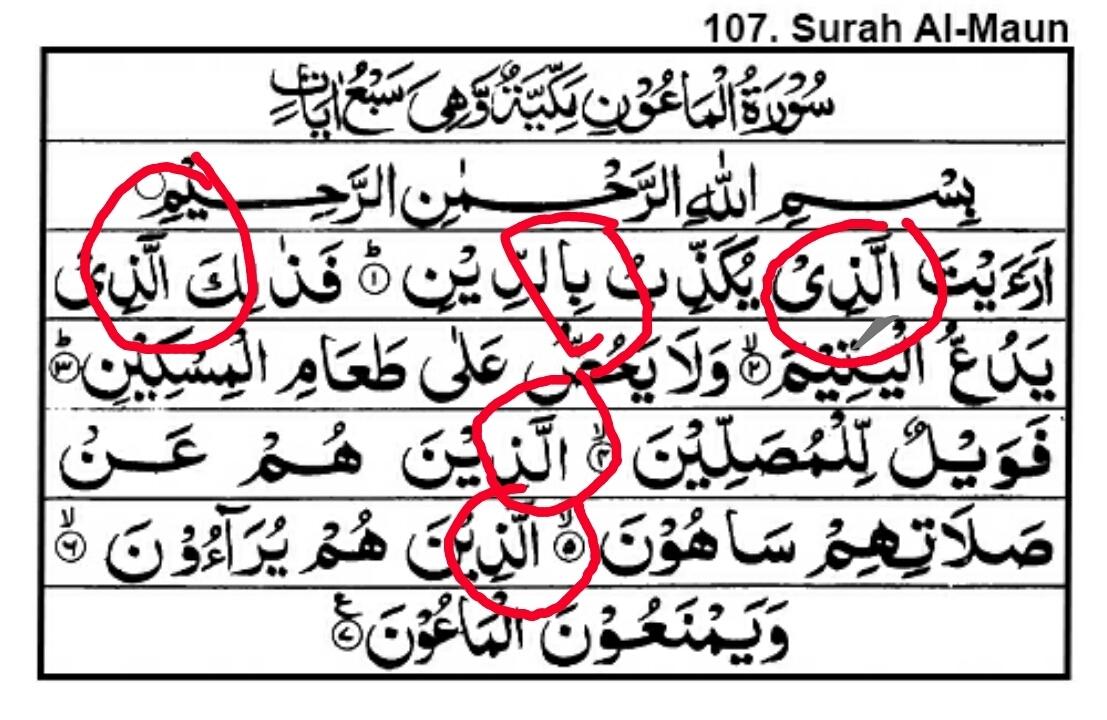 107. Surah Al-Maun
سُوْرَةُ الْمَاعُوْنِ مَكِّيَّةٌ وَّهِىَ سَبْعُ اٰيَاتٍ
بِسْمِ اللهِ الرَّحْمٰنِ الرَّحِيْمِ
اَرَءَيْتَ الَّذِىْ يُكَذِّبُ بِالدِّيْنِ ۱ فَذٰلِكَ الَّذِىْ
يَدُعُّ الْيَتِيْمَ ۲ وَلَا يَحُضُّ عَلٰى طَعَامِ الْمِسْكِيْنِ ۳
فَوَيْلٌ لِّلْمُصَلِّيْنَ ۴ الَّذِيْنَ هُمْ عَنْ
صَلَاتِهِمْ سَاهُوْنَ ۵ الَّذِيْنَ هُمْ يُرَآءُوْنَ ۶
وَيَمْنَعُوْنَ الْمَاعُوْنَ ۷ ع